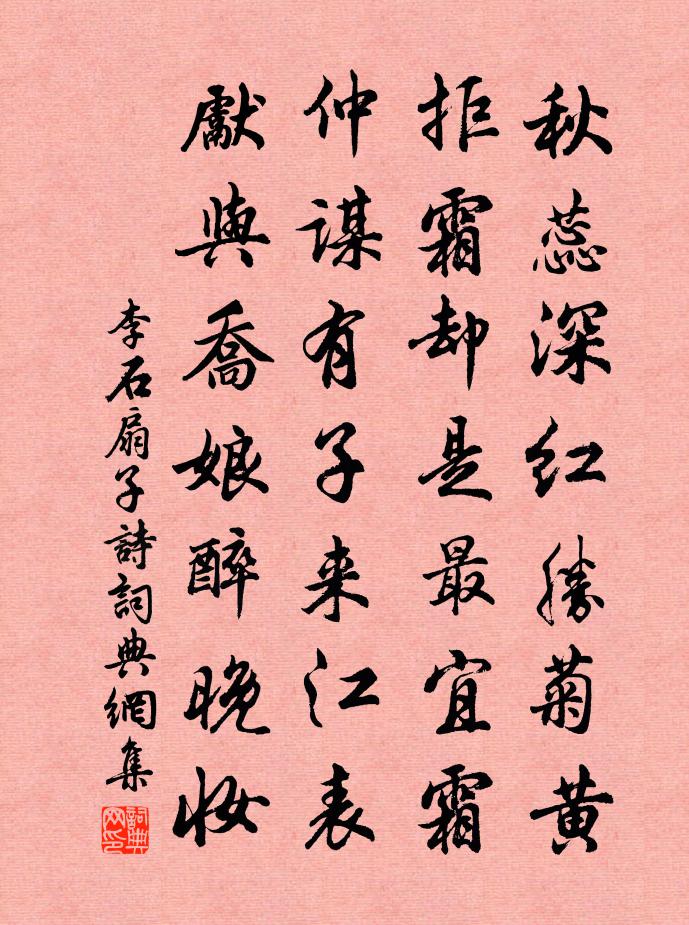 秋蕊深红勝菊黄
拒霜却是最宜霜
仲謀有子来江表
獻與喬娘醉晚妆
李石扇子詩詞典網集
詞典网印